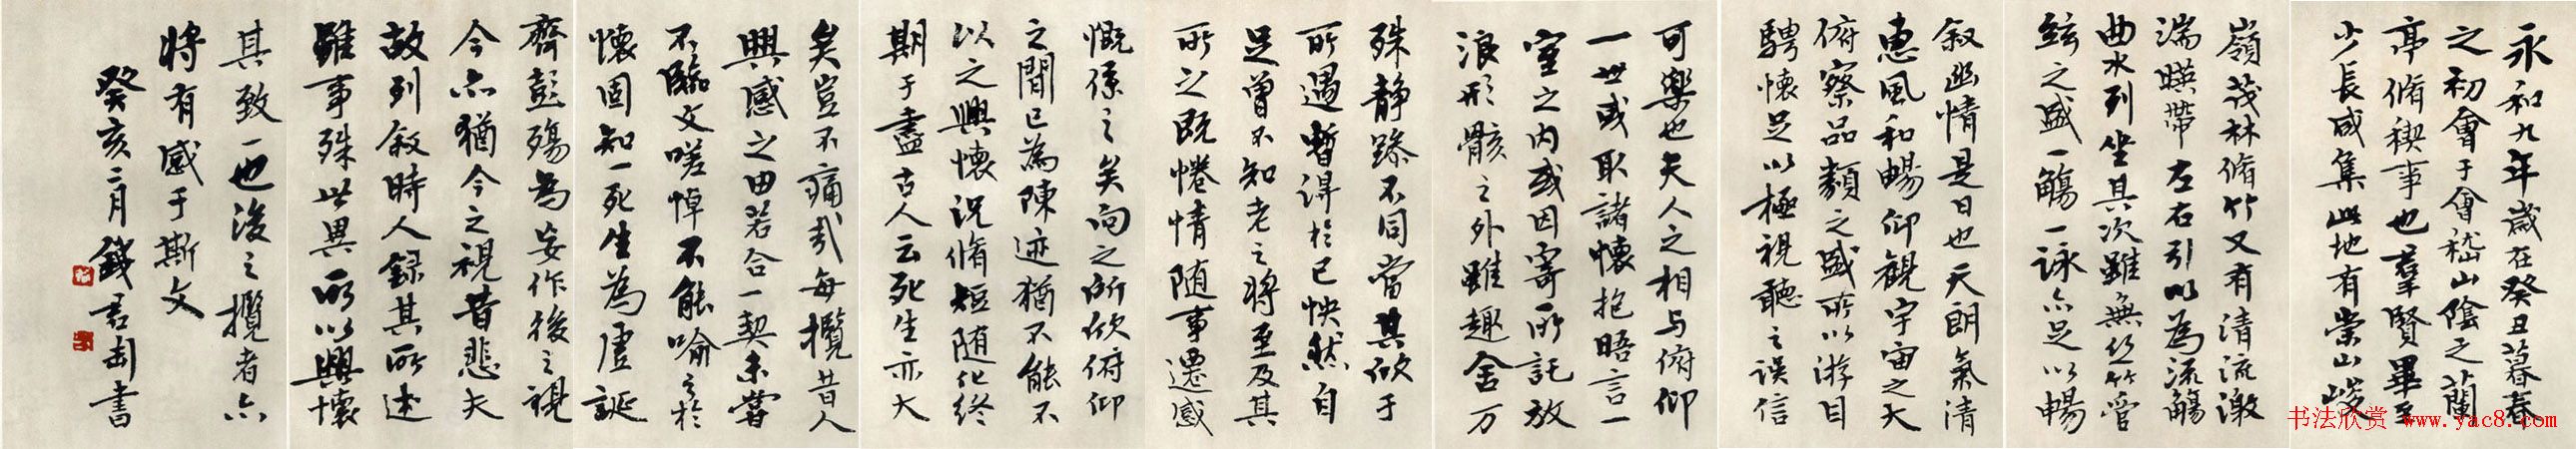 永和九年歲在癸丑暮春
之初會于會稽山陰之蘭
亭脩稧事也羣賢畢至
少長咸集此地有崇山峻
嶺茂林脩竹又有清流激
湍暎帶左右引以為流觴
曲水列坐其次雖無絲竹管
絃之盛一觴一詠亦足以暢
叙幽情是日也天朗氣清
惠風和暢仰觀宇宙之大
俯察品類之盛所以游目
騁懷足以極視聽之娛信
可樂也夫人之相与俯仰
一世或取諸懷抱晤言一
室之内或因寄所託放
浪形骸之外雖趣舍万
殊静躁不同當其欣于
所遇暫得於己怏然自
足曾不知老之將至及其
所之既惓情随事遷感
慨係之矣向之所欣俯仰
之間已為陳迹猶不能不
以之興懷況脩短随化終
期于盡古人云死生亦大
矣豈不痛哉每攬昔人
興感之由若合一契未嘗
不臨文嗟悼不能喻之於
懷固知一死生為虛誕
齊彭殤為妄作後之視
今亦猶今之視昔悲夫
故列叙時人録其所述
雖事殊世異所以興懷
其致一也後之攬者亦
將有感于斯文
癸亥二月錢君匋書
书法欣赏 www.yac8.com